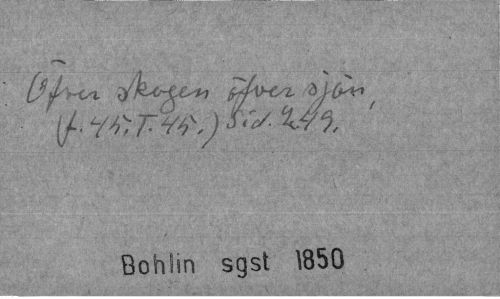 Öfver skogen öfver sjön,
(f. 45. T. 45.) Sid. 249.
Bohlin sgst 1850